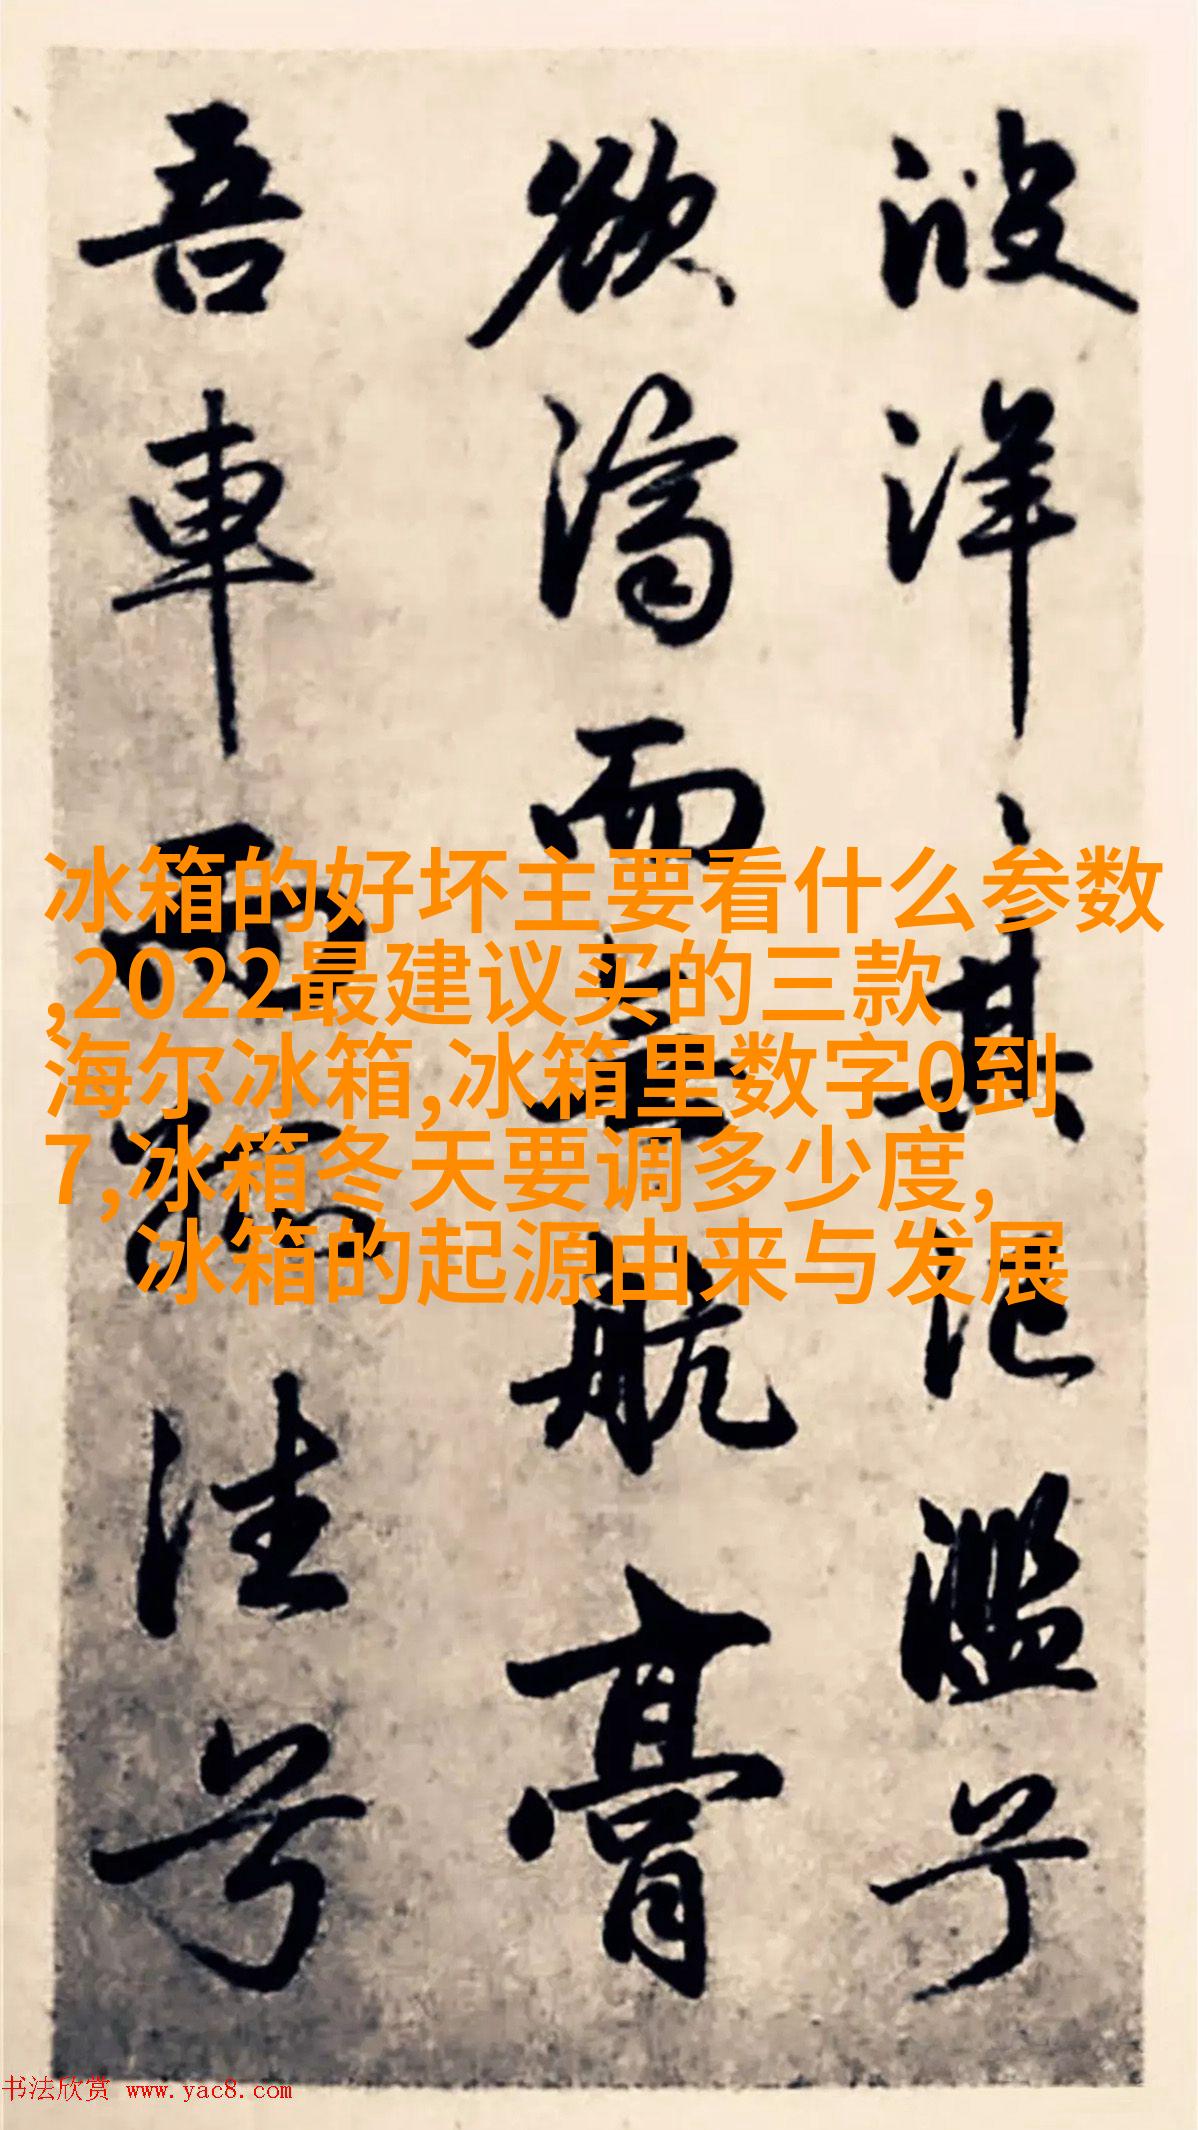 波洋其氾濫兮
欲濟而航膏
吾車往兮
冰箱的好坏主要看什么参数
,2022最建议买的三款
海尔冰箱,冰箱里数字0到
7,冰箱冬天要调多少度,
冰箱的起源由来与发展
书法欣赏 www.yac8.com